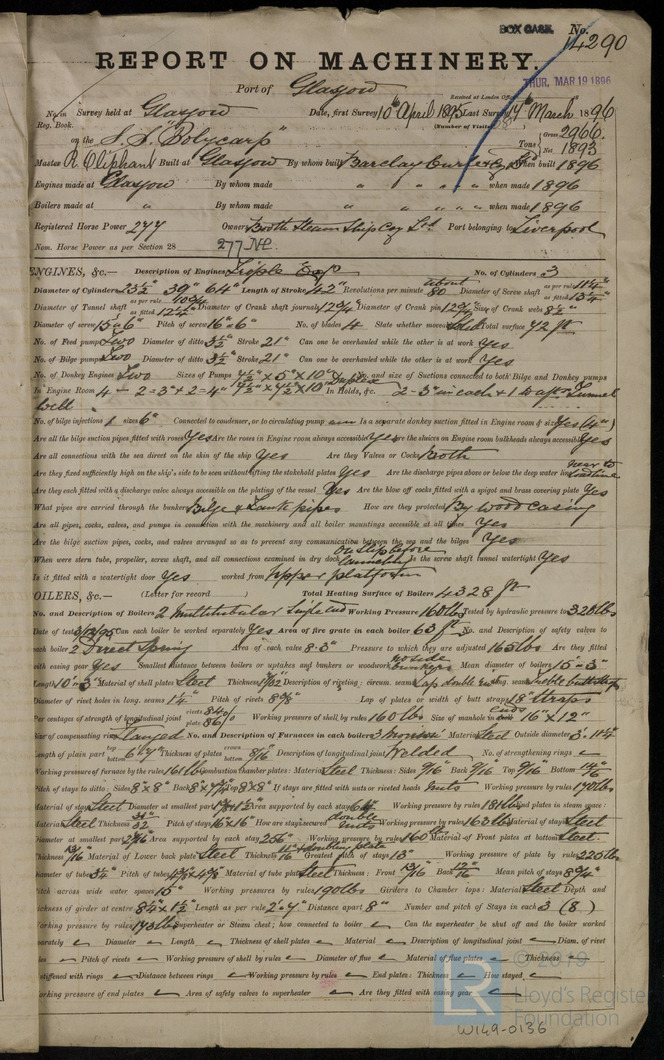 BOX CASK No.
14290
REPORT ON MACHINERY.
Port of Glasgow
Received at London Office THUR. MAR 19 1896
No. in Survey held at Glasgow Date, first Survey 10th April 1895 Last Survey 17th March 1896
Reg. Book. (Number of Visits
on the S.S. "Polycarp" Tons Gross 2966. Net 1893
Master R. Oliphant Built at Glasgow By whom built Barclay Curle & Co Ld When built 1896
Engines made at Glasgow By whom made " " " when made 1896
Boilers made at " By whom made " " " when made 1896
Registered Horse Power 277 Owners Booth Steam Ship Coy Ld Port belonging to Liverpool
Nom. Horse Power as per Section 28 277 NE.
ENGINES, &c.— Description of Engines Triple Exp No. of Cylinders 3
Diameter of Cylinders 23½" 39" 64" Length of Stroke 42" Revolutions per minute about 80 Diameter of Screw shaft as per rule as fitted 13¼"
Diameter of Tunnel shaft as per rule as fitted 12¼" Diameter of Crank shaft journals 12¾" Diameter of Crank pin 12¾" Size of Crank webs 8½"
Diameter of screw 15"6" Pitch of screw 16"6" No. of blades 4 State whether moveable Total surface 72 ft
No. of Feed pumps Two Diameter of ditto 3½" Stroke 21" Can one be overhauled while the other is at work Yes
No. of Bilge pumps Two Diameter of ditto 3½" Stroke 21" Can one be overhauled while the other is at work Yes
No. of Donkey Engines Two Sizes of Pumps No. and size of Suctions connected to both Bilge and Donkey pumps
In Engine Room 4 – 2=3" + 2=4" In Holds, &c. 2–3" in each + 1 aft Tunnel
well
No. of bilge injections 1 sizes 6" Connected to condenser, or to circulating pump Is a separate donkey suction fitted in Engine room & size Yes (4")
Are all the bilge suction pipes fitted with roses Yes Are the roses in Engine room always accessible Yes Are the sluices on Engine room bulkheads always accessible Yes
Are all connections with the sea direct on the skin of the ship Yes Are they Valves or Cocks Both
Are they fixed sufficiently high on the ship's side to be seen without lifting the stokehold plates Yes Are the discharge pipes above or below the deep water line near to loadline
Are they each fitted with a discharge valve always accessible on the plating of the vessel Yes Are the blow off cocks fitted with a spigot and brass covering plate Yes
What pipes are carried through the bunkers Bilge & Tank pipes How are they protected By wood casing
Are all pipes, cocks, valves, and pumps in connection with the machinery and all boiler mountings accessible at all times Yes
Are the bilge suction pipes, cocks, and valves arranged so as to prevent any communication between the sea and the bilges Yes
When were stern tube, propeller, screw shaft, and all connections examined in dry dock On slip before launching Is the screw shaft tunnel watertight Yes
Is it fitted with a watertight door Yes worked from Upper platform
OILERS, &c.— (Letter for record ) Total Heating Surface of Boilers 4328 ft
No. and Description of Boilers 2 Multitubular Single end Working Pressure 160 lbs Tested by hydraulic pressure to 320 lbs
Date of test Can each boiler be worked separately Yes Area of fire grate in each boiler 63 ft No. and Description of safety valves to
each boiler 2 Direct Spring Area of each valve 8.3" Pressure to which they are adjusted 165 lbs Are they fitted
with easing gear Yes Smallest distance between boilers or uptakes and bunkers or woodwork no side bunkers Mean diameter of boilers 15"3"
Length 10"3" Material of shell plates Steel Thickness Description of riveting: circum. seams Lap double riv long. seams Treble butt straps
Diameter of rivet holes in long. seams 1¼" Pitch of rivets 8⅝" Lap of plates or width of butt straps 18" Straps
Per centages of strength of longitudinal joint rivets plate Working pressure of shell by rules 160 lbs Size of manhole in ends 16"x12"
Size of compensating ring Flanged No. and Description of Furnaces in each boiler 3 Material Steel Outside diameter
Length of plain part top bottom Thickness of plates crown bottom 9/16 Description of longitudinal joint Welded No. of strengthening rings
Working pressure of furnace by the rules 161 lbs Combustion chamber plates: Material Steel Thickness: Sides 9/16" Back 9/16" Top 9/16" Bottom
Pitch of stays to ditto: Sides 8"x8" Back Top 8"x8" If stays are fitted with nuts or riveted heads Nuts Working pressure by rules 170 lbs
Material of stays Steel Diameter at smallest part Area supported by each stay Working pressure by rules End plates in steam space:
Material Steel Thickness Pitch of stays 16"x16" How are stays secured double nuts Working pressure by rules 163 lbs Material of stays Steel
Diameter at smallest part Area supported by each stay 256" Working pressure by rules 160 lbs Material of Front plates at bottom Steel.
Thickness Material of Lower back plate Steel Thickness Greatest pitch of stays 13" Working pressure of plate by rules 225 lbs
Diameter of tubes 3¼" Pitch of tubes Material of tube plates Steel Thickness: Front Back Mean pitch of stays
Pitch across wide water spaces 15" Working pressures by rules 190 lbs Girders to Chamber tops: Material Steel Depth and
thickness of girder at centre 8¾"x1½" Length as per rule 2"7" Distance apart 8" Number and pitch of Stays in each 3 (8")
Working pressure by rules Superheater or Steam chest; how connected to boiler Can the superheater be shut off and the boiler worked
separately Diameter Length Thickness of shell plates Material Description of longitudinal joint Diam. of rivet
holes Pitch of rivets Working pressure of shell by rules Diameter of flue Material of flue plates Thickness
If stiffened with rings Distance between rings Working pressure by rules End plates: Thickness How stayed
Working pressure of end plates Area of safety valves to superheater Are they fitted with easing gear
© 2019
LR Lloyd's Register
Foundation
W149-0136